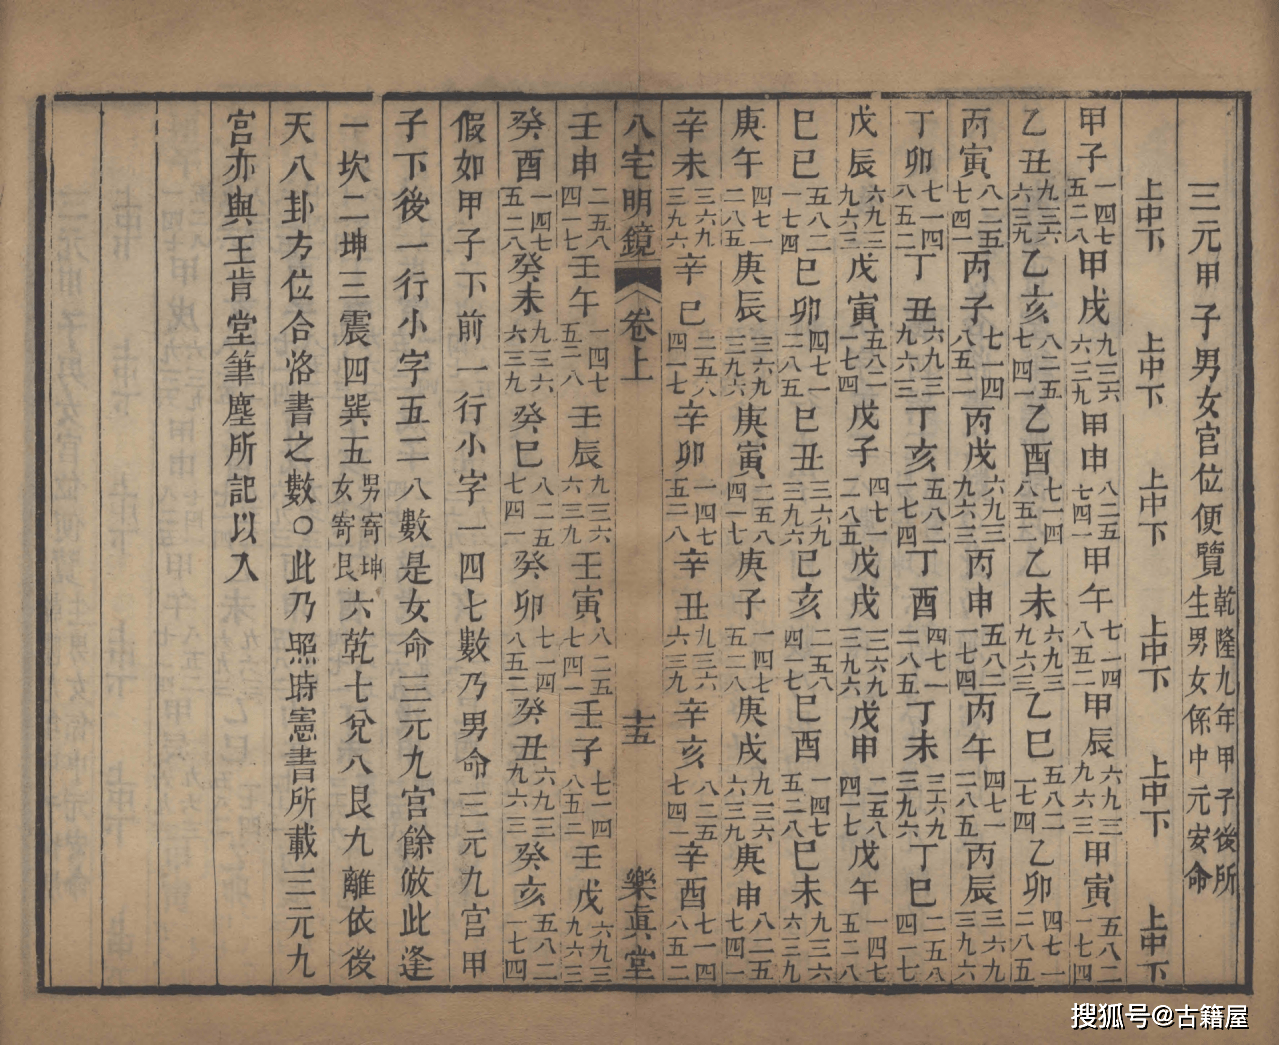 三元甲子男女官位便覽 乾隆九年甲子後所生男女係中元安命
上中下 上中下 上中下 上中下 上中下 上中下
甲子 一四七 五二八 甲戌 九三六 六三九 甲申 八二五 七四一 甲午 七一四 八五二 甲辰 六九三 九六三 甲寅 五八二 一七四
乙丑 九三六 六三九 乙亥 八二五 七四一 乙酉 七一四 八五二 乙未 六九三 九六三 乙巳 五八二 一七四 乙卯 四七一 二八五
丙寅 八二五 七四一 丙子 七一四 八五二 丙戌 六九三 九六三 丙申 五八二 一七四 丙午 四七一 二八五 丙辰 三六九 三九六
丁卯 七一四 八五二 丁丑 六九三 九六三 丁亥 五八二 一七四 丁酉 四七一 二八五 丁未 三六九 三九六 丁巳 二五八 四一七
戊辰 六九三 九六三 戊寅 五八二 一七四 戊子 四七一 二八五 戊戌 三六九 三九六 戊申 二五八 四一七 戊午 一四七 五二八
巳巳 五八二 一七四 巳卯 四七一 二八五 巳丑 三六九 三九六 巳亥 二五八 四一七 巳酉 一四七 五二八 巳未 九三六 六三九
庚午 四七一 二八五 庚辰 三六九 三九六 庚寅 二五八 四一七 庚子 一四七 五二八 庚戌 九三六 六三九 庚申 八二五 七四一
辛未 三六九 三九六 辛巳 二五八 四一七 辛卯 一四七 五二八 辛丑 九三六 六三九 辛亥 八二五 七四一 辛酉 七一四 八五二
八宅明鏡 卷上 十五 樂眞堂
壬申 二五八 四一七 壬午 一四七 五二八 壬辰 九三六 六三九 壬寅 八二五 七四一 壬子 七一四 八五二 壬戌 六九三 九六三
癸酉 一四七 五二八 癸未 九三六 六三九 癸巳 八二五 七四一 癸卯 七一四 八五二 癸丑 六九三 九六三 癸亥 五八二 一七四
假如甲子下前一行小字一四七數乃男命三元九宮甲
子下後一行小字五二八數是女命三元九宮餘倣此逢
一坎二坤三震四巽五 男寄坤 女寄艮 六乾七兌八艮九離依後
天八卦方位合洛書之數〇此乃照時憲書所載三元九
宮亦與王肯堂筆塵所記以入
搜狐号@古籍屋